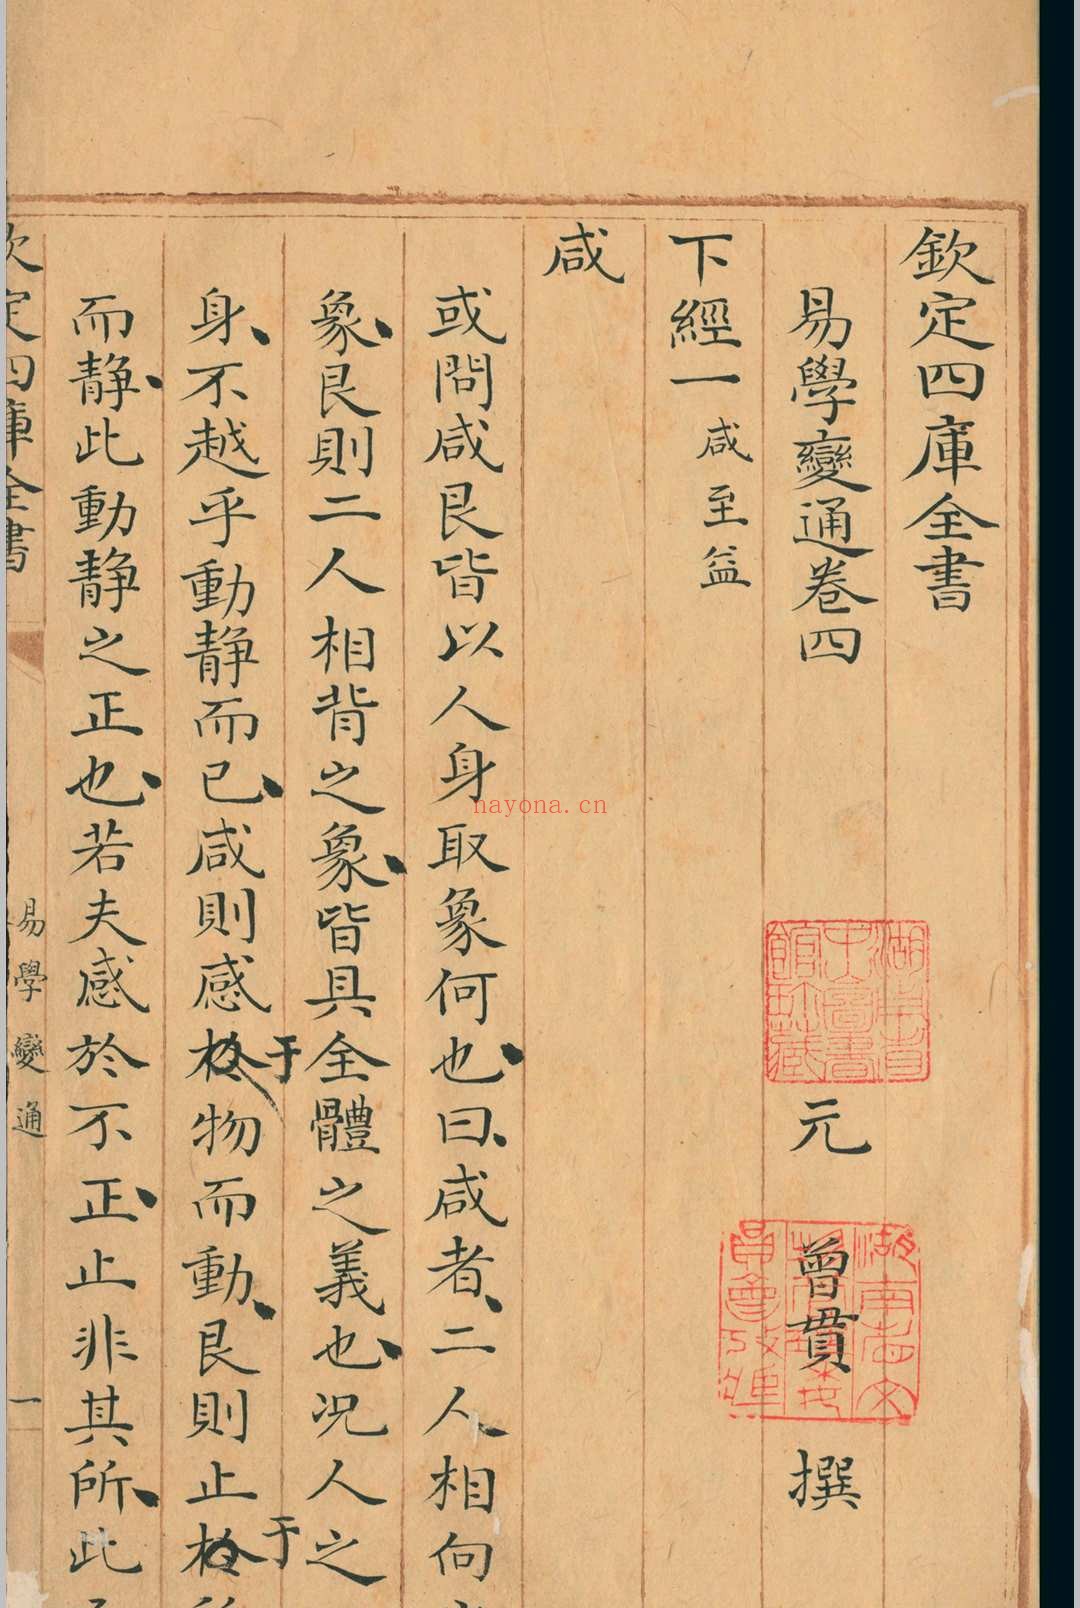 欽定四庫全書
易學變通卷四
元 曾貫 撰
下經一 咸至益
咸
或問咸艮皆以人身取象何也曰咸者二人相向
象艮則二人相背之象皆具全體之義也况人之
身不越乎動静而已咸則感於于物而動艮則止於于
而静此動静之正也若夫感於不正止非其所此
欽定四庫全書
易學變通
一
湖南省中山圖書館珍藏
nayona.cn